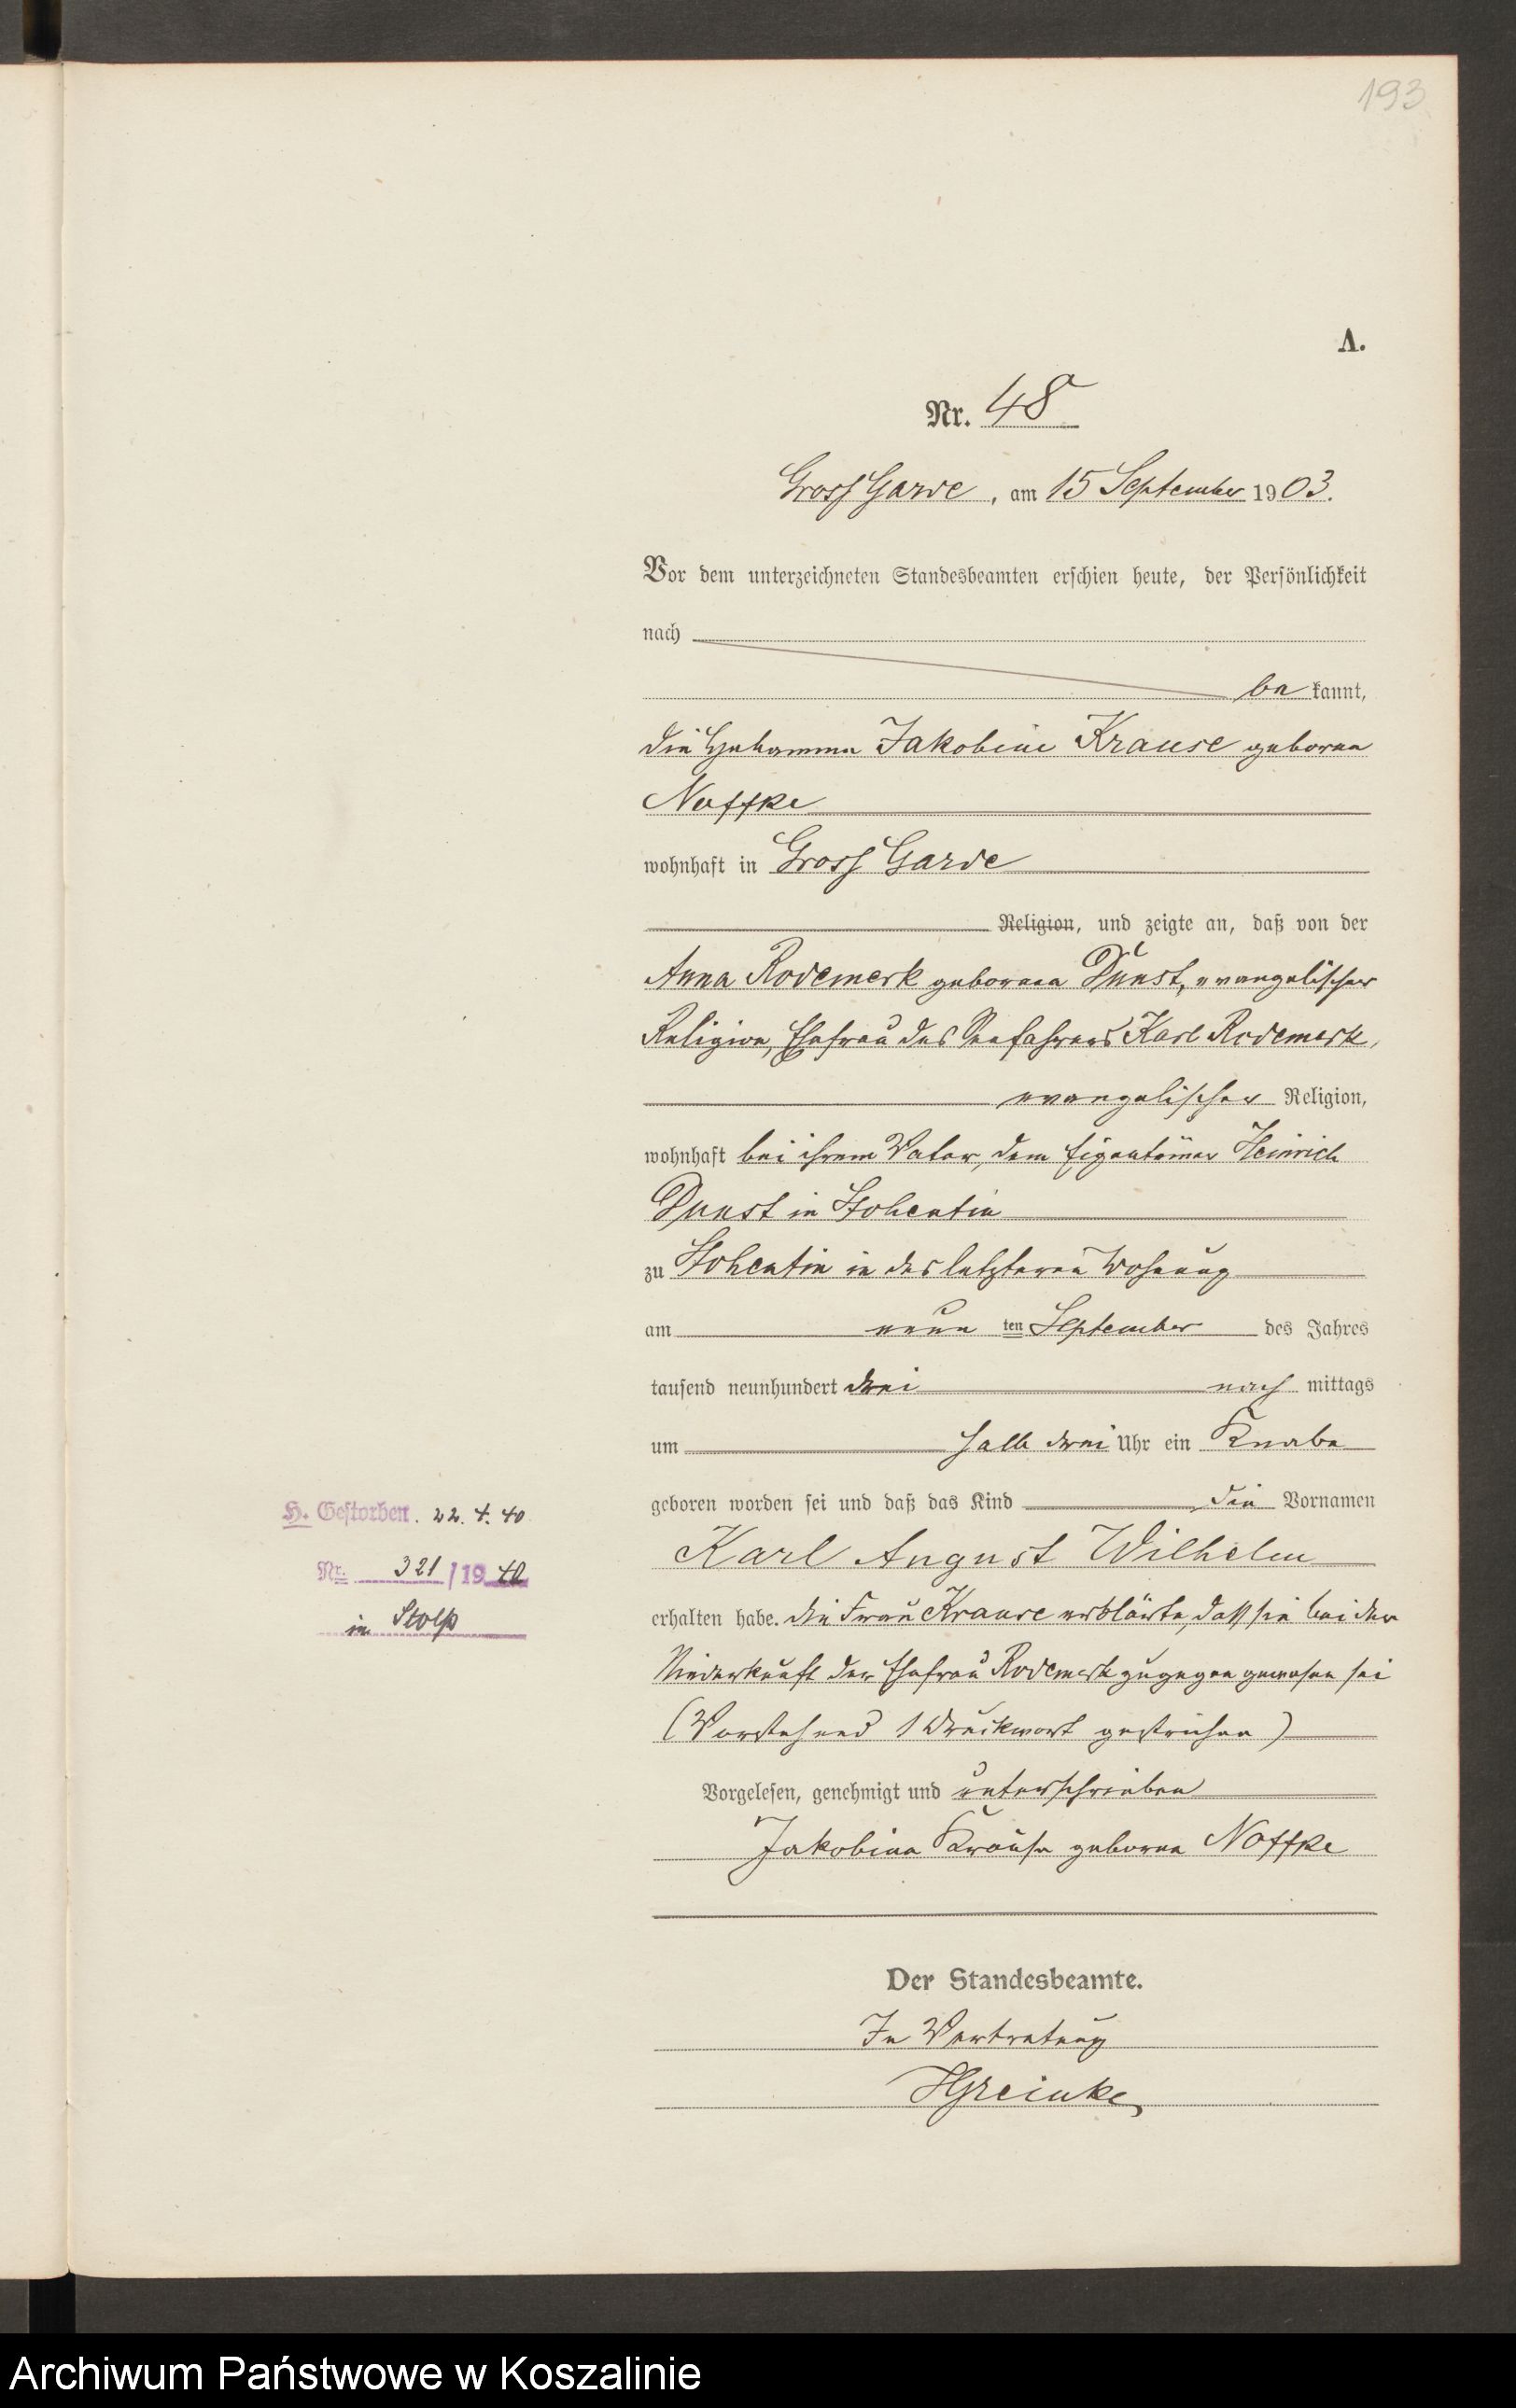 193
A.
Nr. 48
Gross Garde, am 15 September 1903.
Vor dem unterzeichneten Standesbeamten erschien heute, der Persönlichkeit
nach
be kannt,
die Hebamme Jakobine Krause geborne
Noffke
wohnhaft in Gross Garde
Religion, und zeigte an, daß von der
Anna Rodemerk geborene Dunst, evangelischer
Religion, Ehefrau des Seefahrers Karl Rodemerk,
evangelischer Religion,
wohnhaft bei ihrem Vater, dem Eigentümer Heinrich
Dunst in Stohentin
zu Stohentin in des letzteren Wohnung
am neun ten September des Jahres
tausend neunhundert drei nach mittags
um halb drei Uhr ein Knabe
geboren worden sei und daß das Kind die Vornamen
Karl August Wilhelm
erhalten habe. Die Frau Krause erklärte, daß sie bei der
Niederkunft der Ehefrau Rodemerk zugegen gewesen sei
(Vorstehend 1 Druckwort gestrichen)
Vorgelesen, genehmigt und unterschrieben
Jakobine Krause geborne Noffke
Der Standesbeamte.
In Vertretung
HGreinke
H. Gestorben. 22. 4. 40
Nr. 321/1940
in Stolp
Archiwum Państwowe w Koszalinie